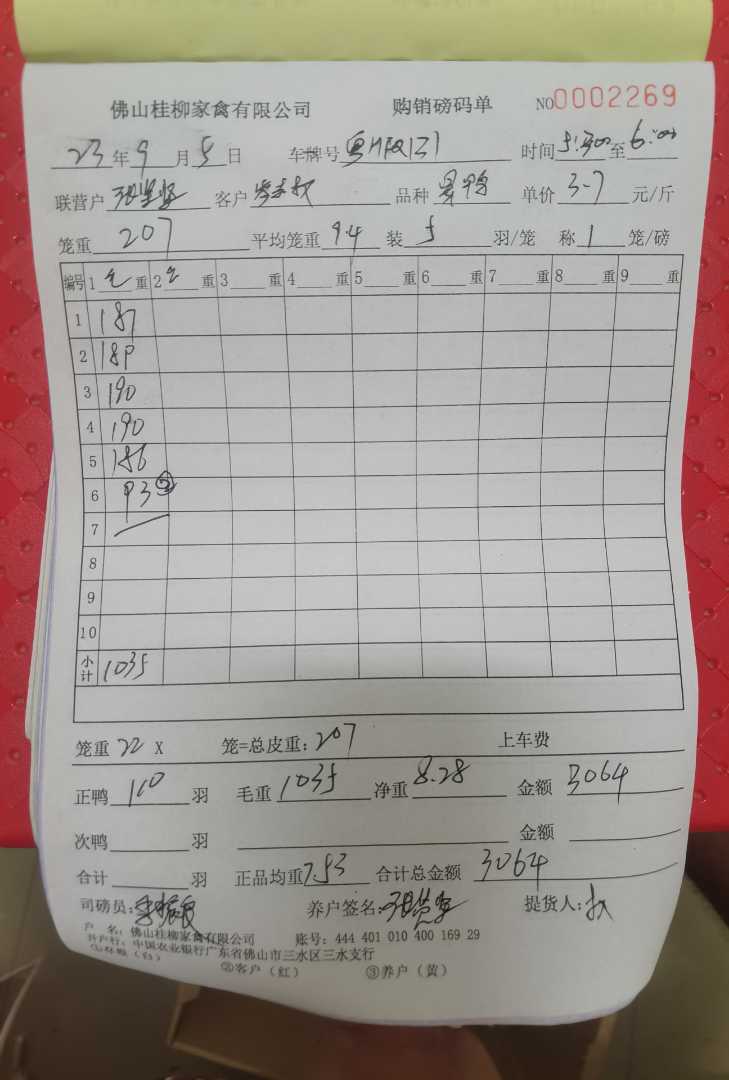 佛山桂柳家禽有限公司 购销磅码单 NO0002269
23年9月5日 车牌号 时间5:30至6:00
联营户 客户 品种 单价3-7元/斤
笼重207 平均笼重9.4 装5羽/笼 称1笼/磅
编号 1 重 2 重 3 重 4 重 5 重 6 重 7 重 8 重 9 重
1 187
2 189
3 190
4 190
5 186
6 93
7
8
9
10
小计 1035
笼重22 X 笼=总皮重:207 上车费
正鸭110羽 毛重1035 净重8.28 金额3064
次鸭 羽 金额
合计 羽 正品均重7.53 合计总金额3064
司磅员: 养户签名: 提货人:
户 名:佛山桂柳家禽有限公司 账号:444 401 010 400 169 29
开户行:中国农业银行广东省佛山市三水区三水支行
①存根(白) ②客户(红) ③养户(黄)